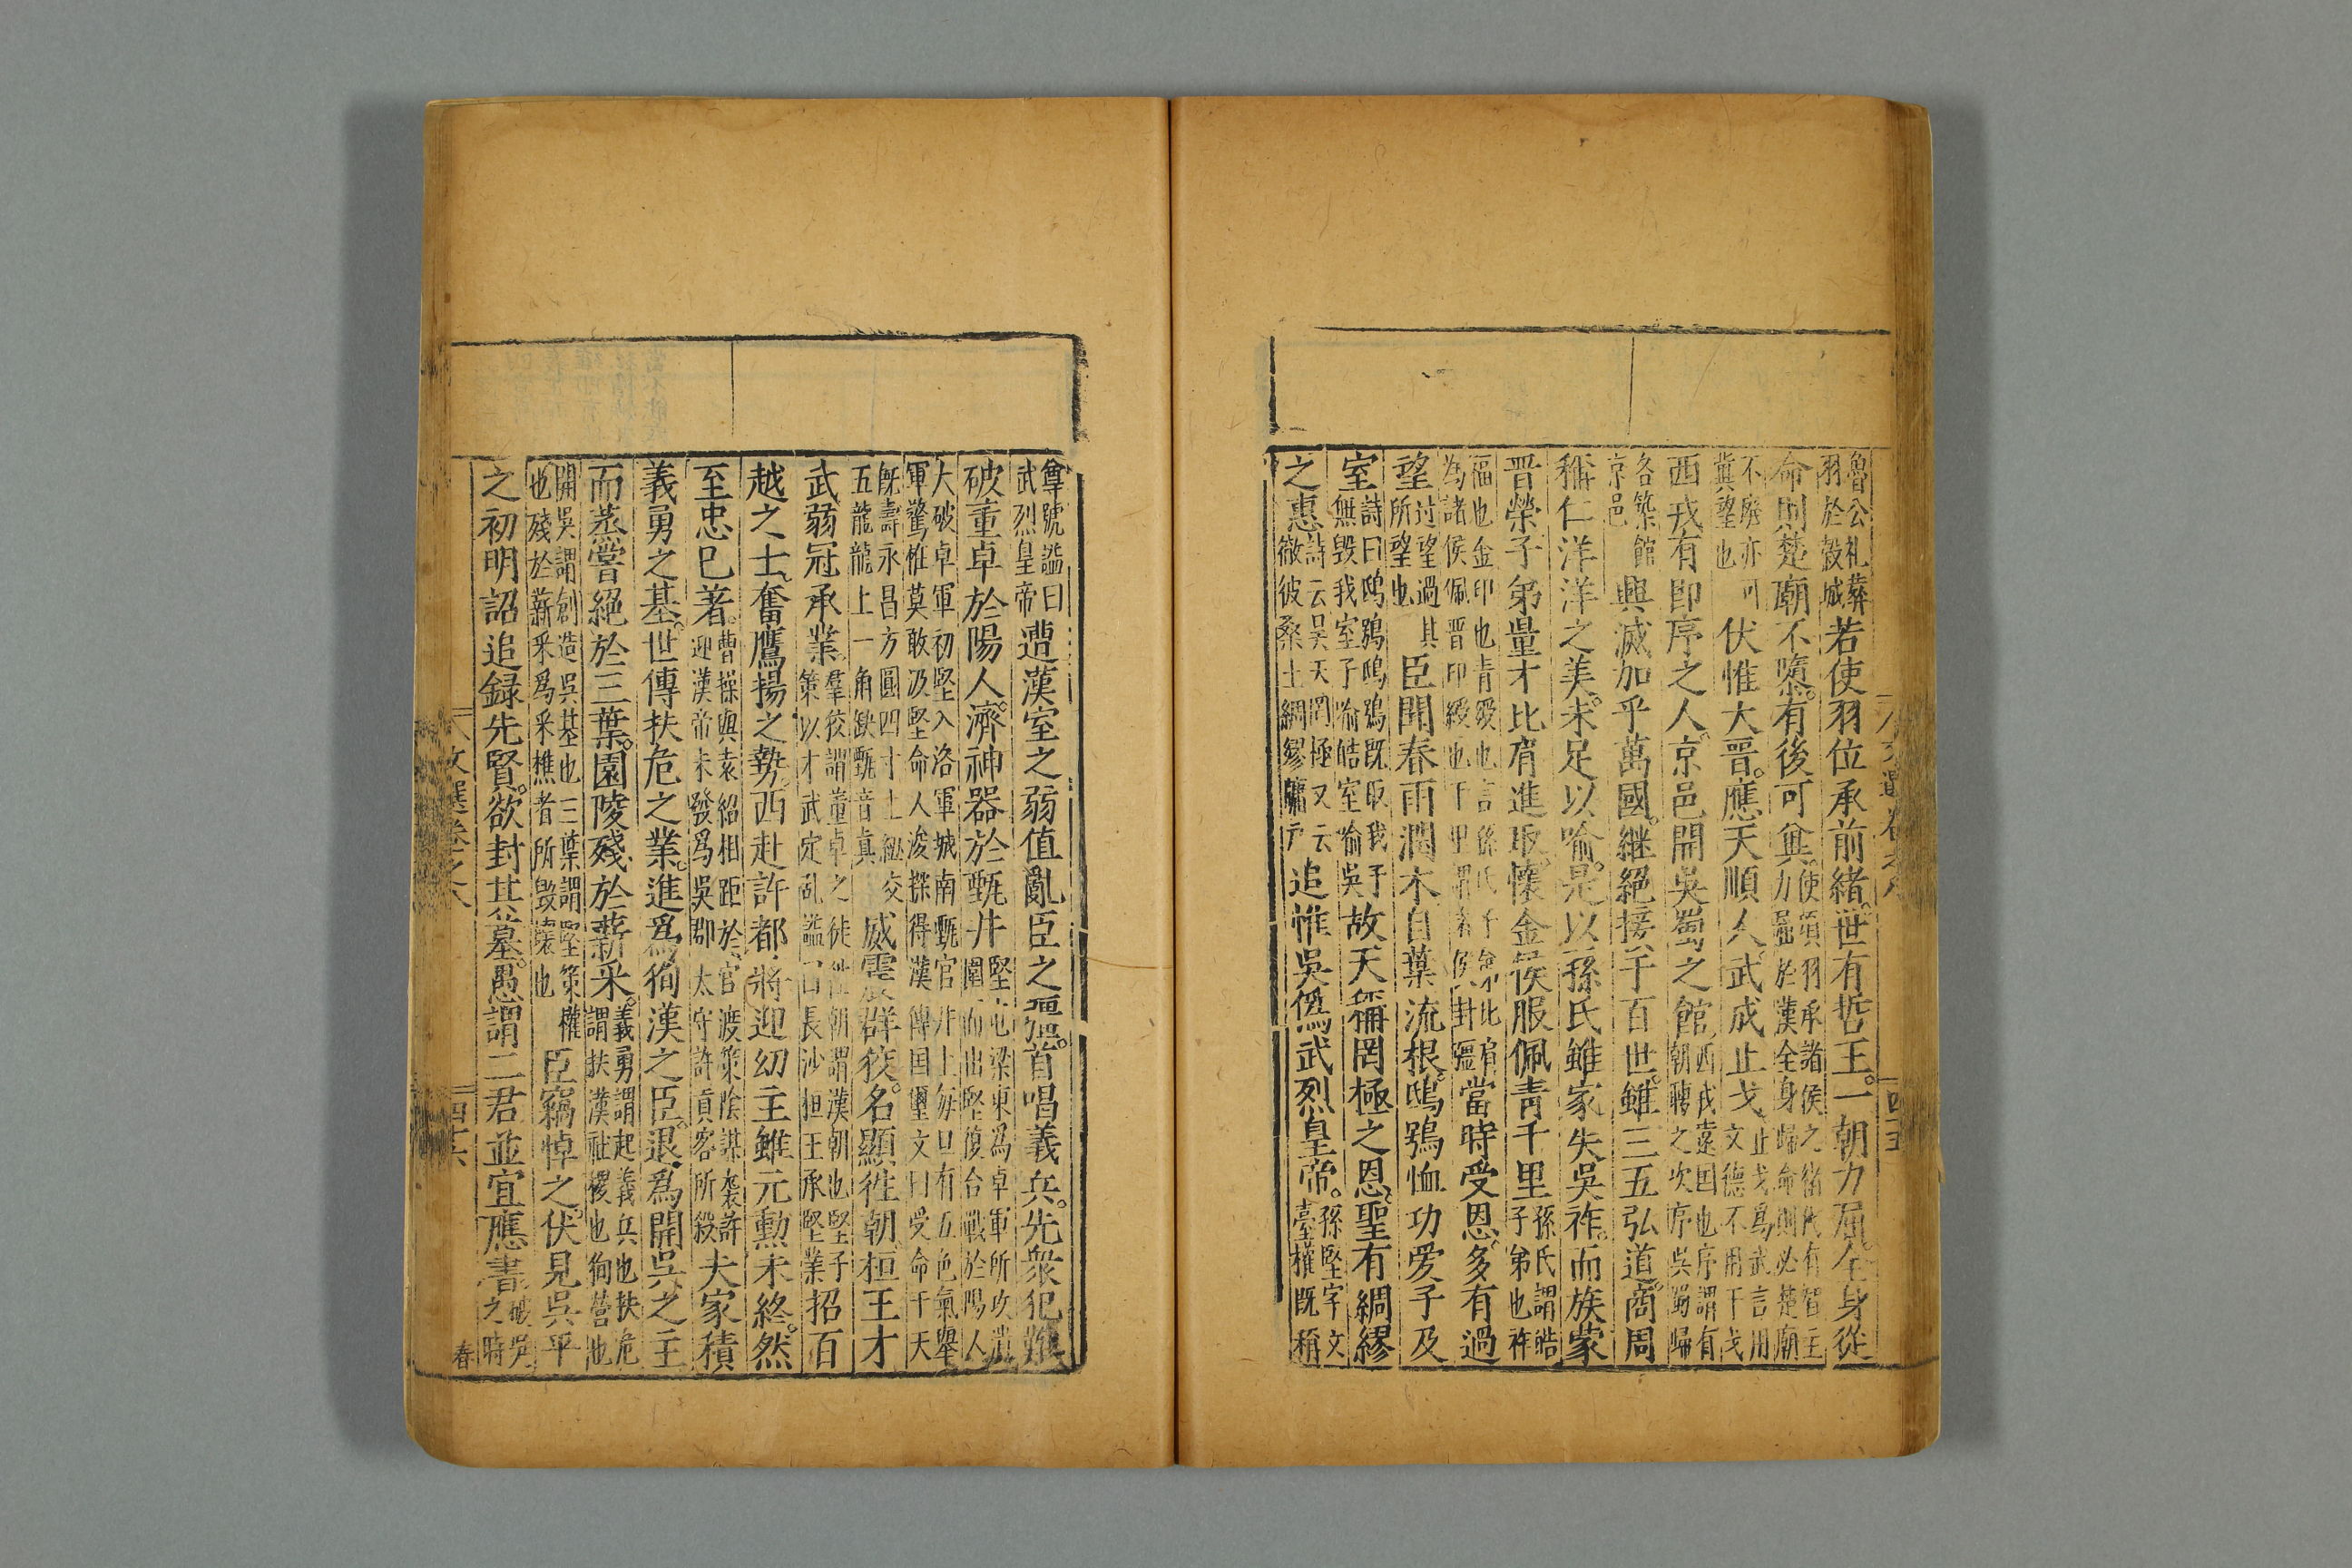 魯公礼葬
羽於穀城
若使羽位承前緒。世有哲王。一朝力屈。全身從
命則楚廟不隳。有後可兾。
使項羽承諸侯之緒代有智主
力屈於漢全身歸命則必楚廟
不隳亦可
兾望也
伏惟大晋。應天順人。武成止戈
止戈爲武言用
文德不用干戈
西戎有即序之人。京邑開吳蜀之館
西戎遠国也序謂有
朝聘之次序吳蜀歸
各築館
京邑
興滅加乎萬國。継絕接于百世。雖三五弘道。商周
稱仁洋洋之美。未足以喻。是以孫氏雖家失吳祚。而族蒙
晋榮子弟量才比肩進取。懷金侯服佩青千里
孫氏謂皓
子弟也祚
福也金印也青綬也言孫氏
為諸侯佩晋印綬也千里
當時受恩。多有過
望
过望過其
所望也
臣聞春雨潤木自葉流根。鴟鴞恤功爱子及
室
詩曰鴟鴞鴟鴞既取我子
無毀我室子喻皓室喻吳
故天稱罔極之恩。聖有綢繆
之惠
詩云昊天罔極又云
徹彼桑土綢繆牖戶
追惟吳僞武烈皇帝。
孫堅字文
臺權既稱
尊號謚曰
武烈皇帝
遭漢室之弱值亂臣之强。首唱義兵。先衆犯難
破董卓於陽人。濟神器於甄井
堅屯梁東爲卓軍所攻潰
圍而出堅復合戰於陽人
大破卓軍初堅入洛軍城南甄官井上每旦有五色氣舉
軍驚惟莫敢汲堅命人浚探得漢傳国璽文曰受命于天
既壽永昌方圓四寸上紐交
五龍龍上一角缺甄音真
威震群狡。名顯徃朝。桓王才
武弱冠承業。
羣狡謂董卓之徒徃朝謂漢朝也堅子
策以才武定乱謚曰長沙桓王承堅業
招百
越之士。奮鷹揚之勢。西赴許都。將迎幼主雖元勳未終。然
至忠已著。
曹操與袁紹相距於官渡策陰謀襲許
迎漢帝未發爲吳郡太守許貢客所殺
夫家積
義勇之基。世傳扶危之業。進爲狥漢之臣。退爲開吳之主
而蒸嘗絕於三葉。園陵殘於薪采。
義勇謂起義兵也扶危
謂扶漢社稷也狥營也
開吳謂創造吳基也三葉謂堅策權
也殘於薪采爲采樵者所毀壊也
臣竊悼之。伏見吳平
之初明詔追録先賢。欲封其墓。愚謂二君並宜應書
破吳
之時
文選卷之八
四六
春